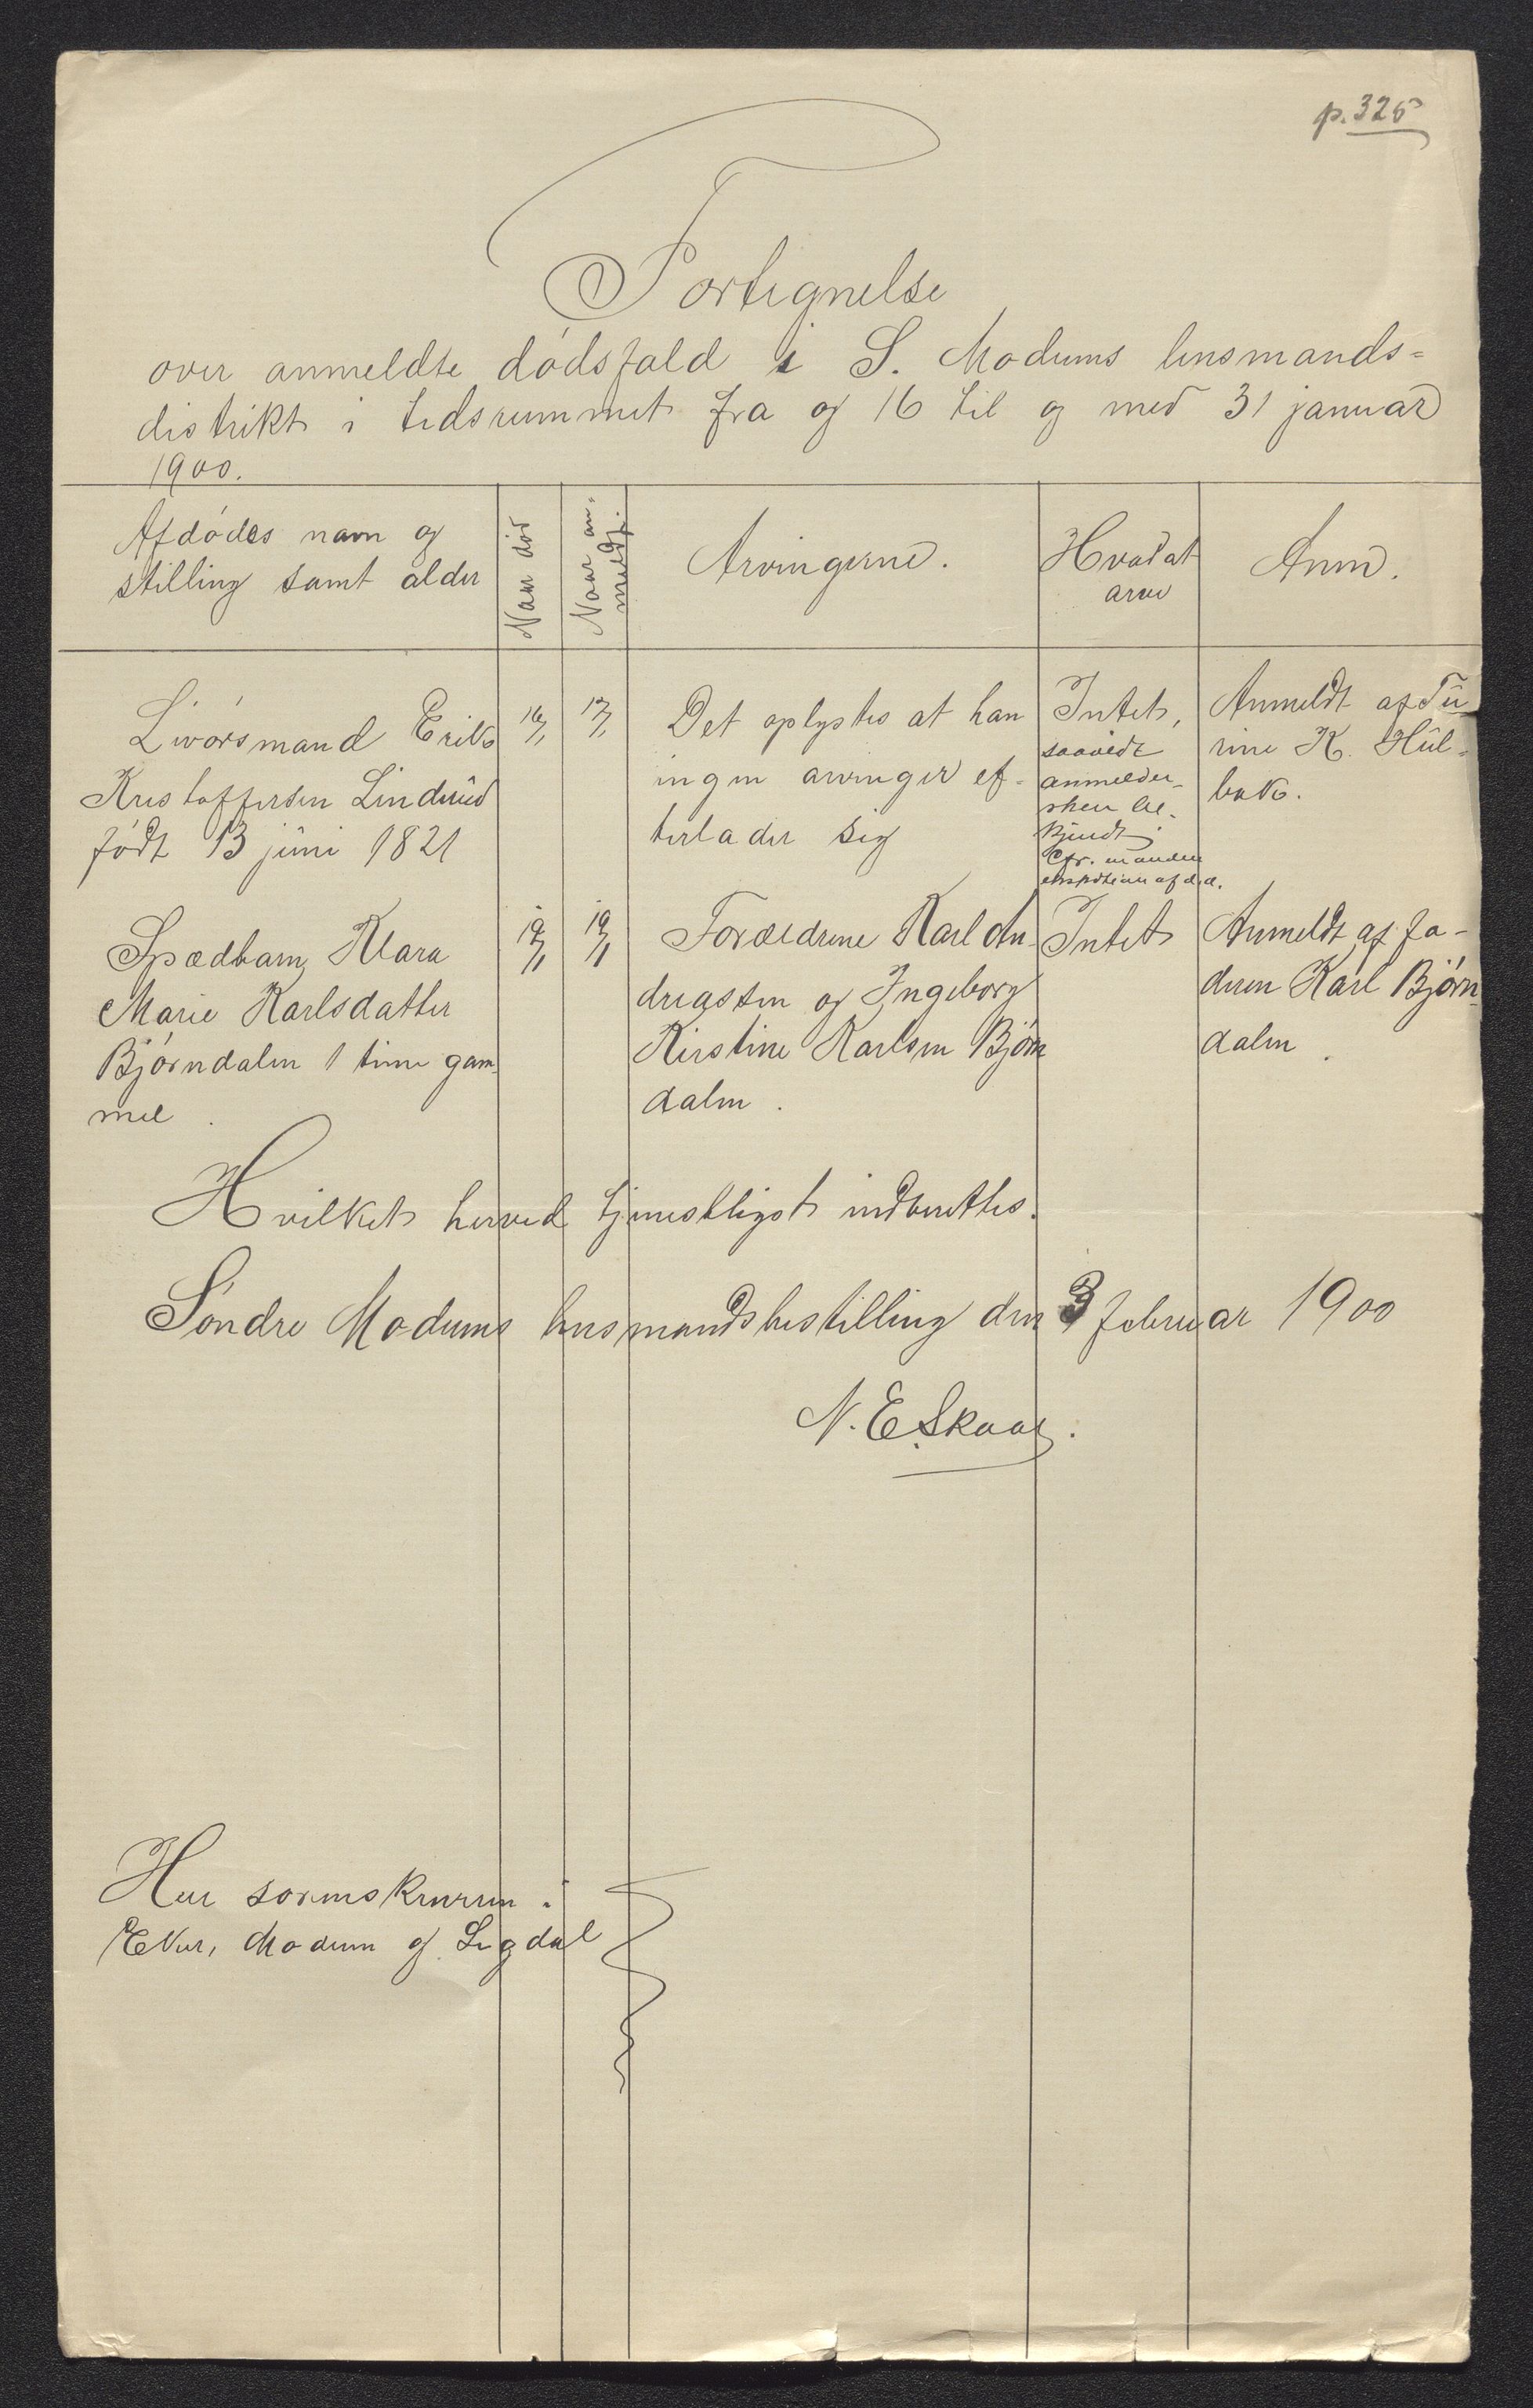 p. 325
Fortegnelse
over anmeldte dødsfald i S. Modums lensmands=
distrikt i tidsrummet fra og 16 til og med 31 januar
1900.
Afdødes navn og
stilling samt alder
Naar død
Naar an-
meldt.
Arvingerne.
Hvad at
arve
Anm.
Livørsmand Erik
Kristoffersen Linderud
født 13 juni 1821
16/1
17/1
Det oplystes at han
ingen arvinger ef-
terlader sig
Intet,
saavidt
anmelder-
sken be-
kjendt.
Cfr. manden
Anmeldt af Tu
rine K. Hul=
bak.
Spædbarn Klara
Marie Karlsdatter
Bjørndalen 1 time gam-
mel.
19/1
19/1
Forældrene Karl An-
dreassen og Ingeborg
Kirstine Karlsen Bjørn
dalen.
Intet
Anmeldt af fa-
deren Karl Bjørn=
dalen.
Hvilket herved tjenestligst indberettes.
Søndre Modums lensmandsbestilling den 3 februar 1900
N. E. Skaar.
Herr sorenskriveren i
Eker, Modum og Sigdal